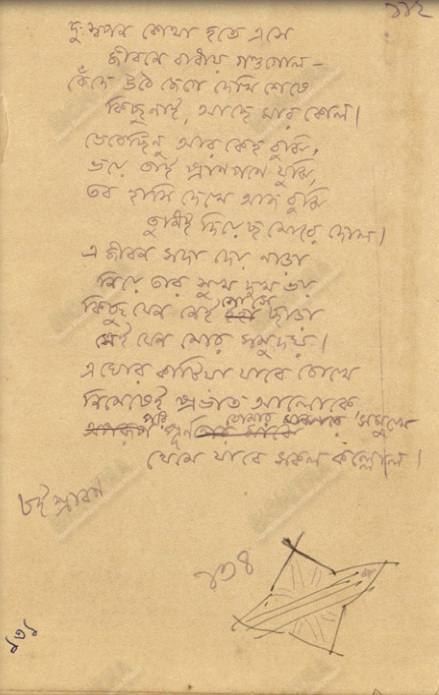 ১১২
দুঃস্বপন কোথা হতে এসে
জীবনে বাধায় গণ্ডগোল—
কেঁদে উঠে জেগে দেখি শেষে
কিছু নাই, আছে মার কোল।
ভেবেছিনু আর কেহ বুঝি,
ভয়ে তাই প্রাণপণে যুঝি,
তব হাসি দেখে আজ বুঝি
তুমিই দিয়েছ মোরে দোল।
এ জীবন সদা দেয় নাড়া
নিয়ে তার সুখ দুখ ভয়
কিছু যেন নেই গো সে ছাড়া
সেই যেন মোর সমুদয়।
এ ঘোর কাটিয়া যাবে চোখে
নিমেষেই প্রভাত আলোকে
পরিপূর্ণ তোমার সম্মুখে
থেমে যাবে সকল কল্লোল।
১৩৪
১৩১